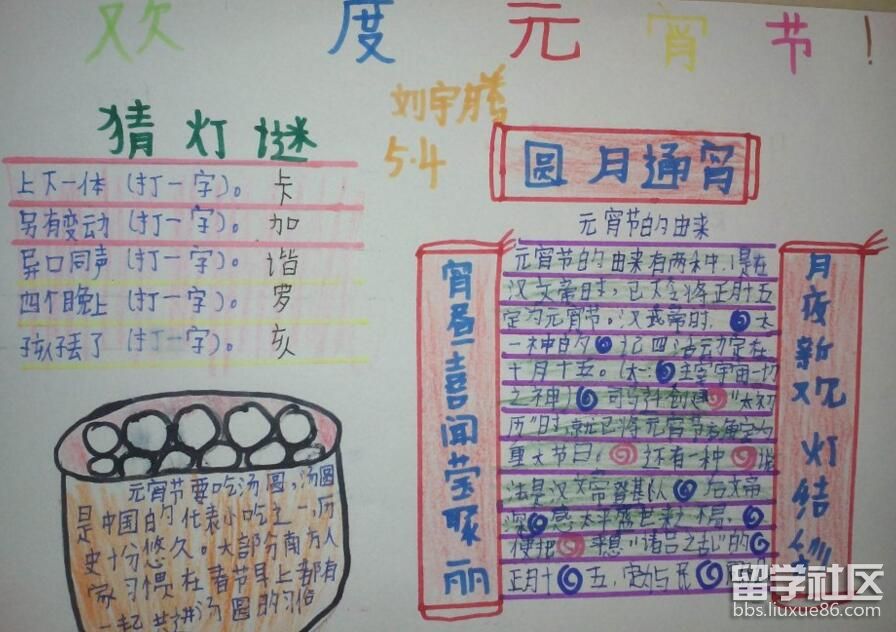 欢度元宵节!
刘宇腾
5.4
猜灯谜
上下一体(打一字)。卡
另有变动(打一字)。加
异口同声(打一字)。谐
四个晚上(打一字)。罗
孩子丢了(打一字)。亥
元宵节要吃汤圆,汤圆
是中国的代表小吃之一,历
史十分悠久。大部分南方人
家习惯在春节早上都有
一起共进汤圆的习俗
圆月通宵
元宵节的由来
元宵节的由来有两种,1是在
汉文帝时,已下令将正月十五
定为元宵节。汉武帝时,太
一神的 祀四活动定在
十月十五。(太 主宰宇宙一切
之神)司马迁创建"太初
历"时,就已将元宵节 确定为
重大节日。还有一种 说
法是汉文帝登基 后文帝
深 感太平盛世来之不易,
便把 平息"诸吕之乱"的
正月十五,定为
宵昼喜闻莹聚丽
月夜新 灯结
留学社区
bbs.liuxue86.com